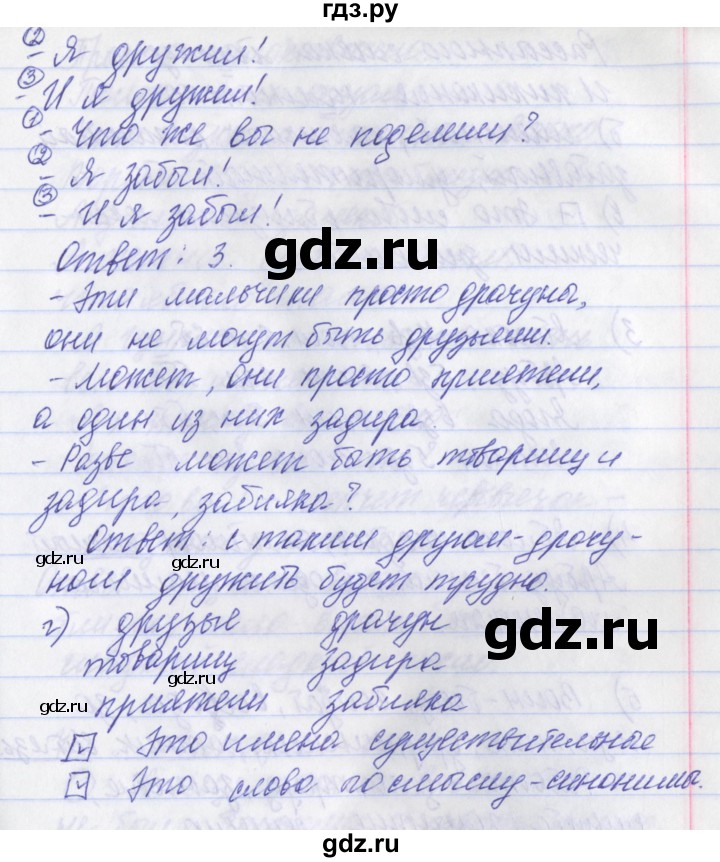 гдз.ру
② - Я дружил!
③ - И я дружил!
① - Что же вы не поделили?
② - Я забыл!
③ - И я забыл!
Ответ: 3.
gdz.ru
- Эти мальчики просто драчуны,
они не могут быть друзьями.
- Может, они просто приятели,
а один из них задира.
- Разве может быть товарищ и
задира, забияка?
gdz.ru
gdz.ru
Ответ: с таким другом-драчу-
ном дружить будет трудно.
г) друзья драчун
gdz.ru
товарищ задира
gdz.ru
gdz.ru
приятели забияка
☑ Это имена существительные
☑ Это слова по смыслу-синонимы.
gdz.ru
gdz.ru
gdz.ru